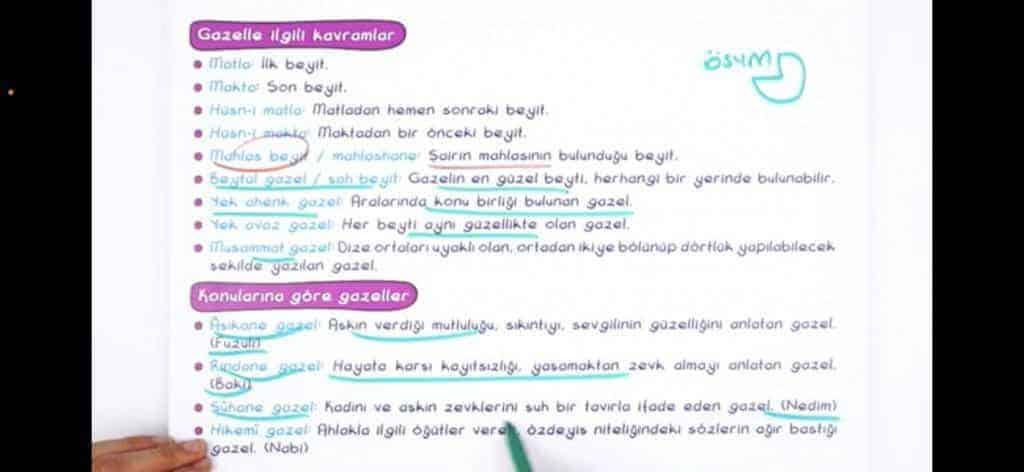 Gazelle ilgili kavramlar
ÖSYM
• Matla: İlk beyit.
• Makta: Son beyit.
• Hüsn-i matla: Matladan hemen sonraki beyit.
• Hüsn-i makta: Maktadan bir önceki beyit.
• Mahlas beyit / mahlashane: Şairin mahlasının bulunduğu beyit.
• Beytül gazel / şah beyit: Gazelin en güzel beyti, herhangi bir yerinde bulunabilir.
• Yek ahenk gazel: Aralarında konu birliği bulunan gazel.
• Yek avaz gazel: Her beyti aynı güzellikte olan gazel.
• Musammat gazel: Dize ortaları uyaklı olan, ortadan ikiye bölünüp dörtlük yapılabilecek
şekilde yazılan gazel.
Konularına göre gazeller
• Âşıkane gazel: Aşkın verdiği mutluluğu, sıkıntıyı, sevgilinin güzelliğini anlatan gazel.
(Fuzuli)
• Rindane gazel: Hayata karşı kayıtsızlığı, yaşamaktan zevk almayı anlatan gazel.
(Baki)
• Şûhane gazel: Kadını ve aşkın zevklerini şuh bir tavırla ifade eden gazel. (Nedim)
• Hikemî gazel: Ahlakla ilgili öğütler veren özdeyiş niteliğindeki sözlerin ağır bastığı
gazel. (Nabi)